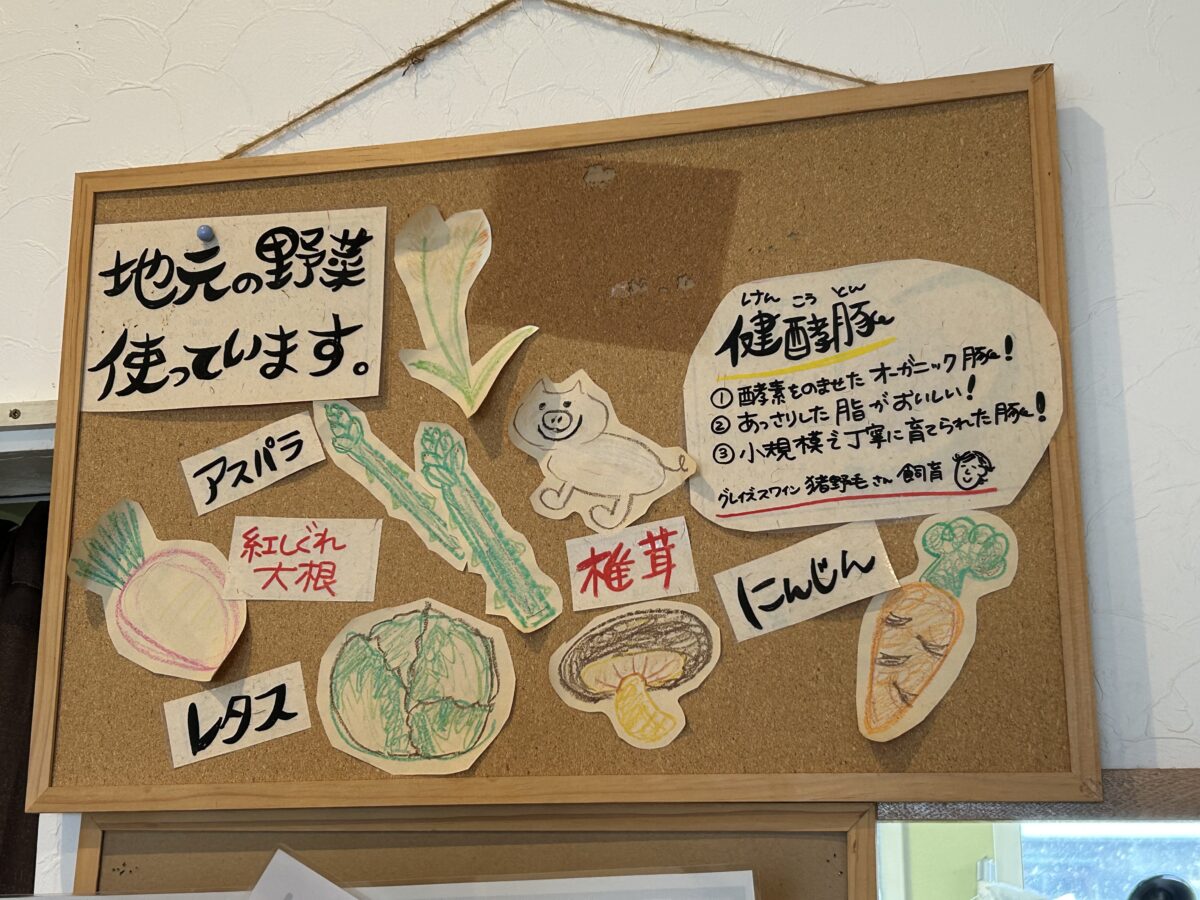 地元の野菜
使っています。
けんこうとん
健酵豚
①酵素をのませたオーガニック豚!
②あっさりした脂がおいしい!
③小規模で丁寧に育てられた豚!
グレイズスワイン 猪野毛さん 飼育
アスパラ
紅しぐれ
大根
椎茸
にんじん
レタス